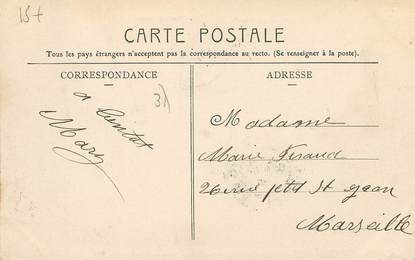 15+
CARTE POSTALE
Tous les pays étrangers n'acceptent pas la correspondance au recto. (Se renseigner à la poste).
CORRESPONDANCE
a bientot
Mary
ADRESSE
Madame
Marie Feraud
26 rue petit St jean
Marseille